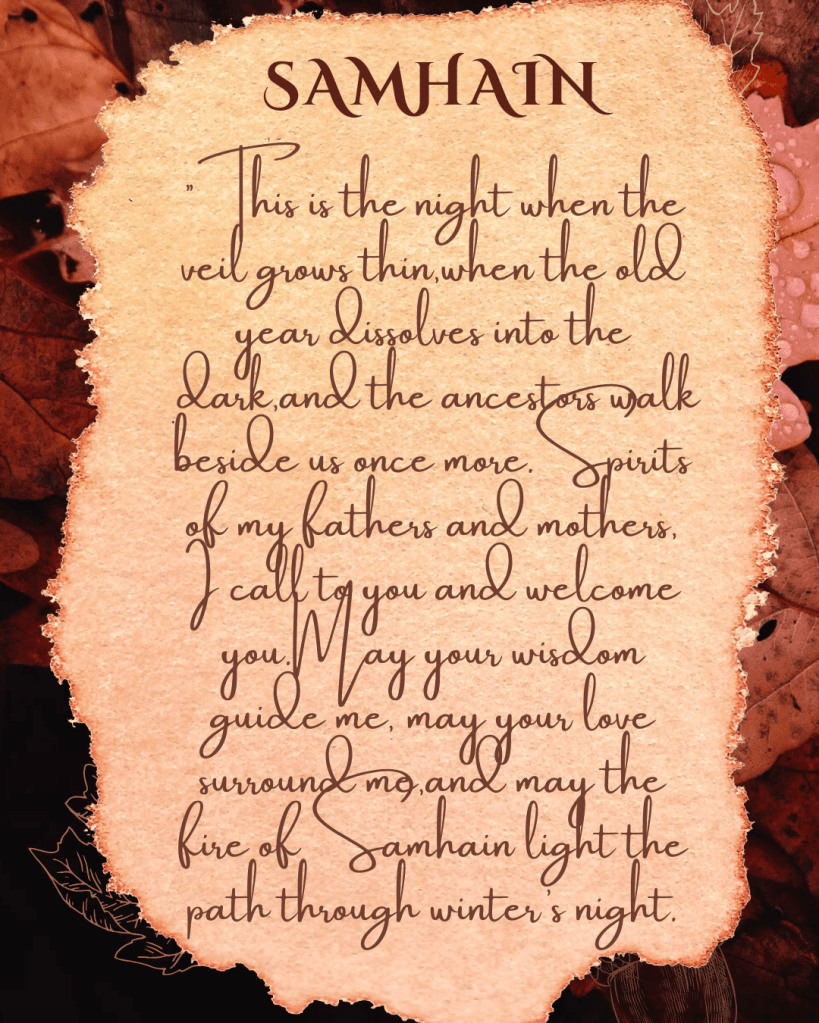 SAMHAIN
" This is the night when the
veil grows thin,when the old
year dissolves into the
dark,and the ancestors walk
beside us once more. Spirits
of my fathers and mothers,
I call to you and welcome
you.May your wisdom
guide me, may your love
surround me,and may the
fire of Samhain light the
path through winter's night.